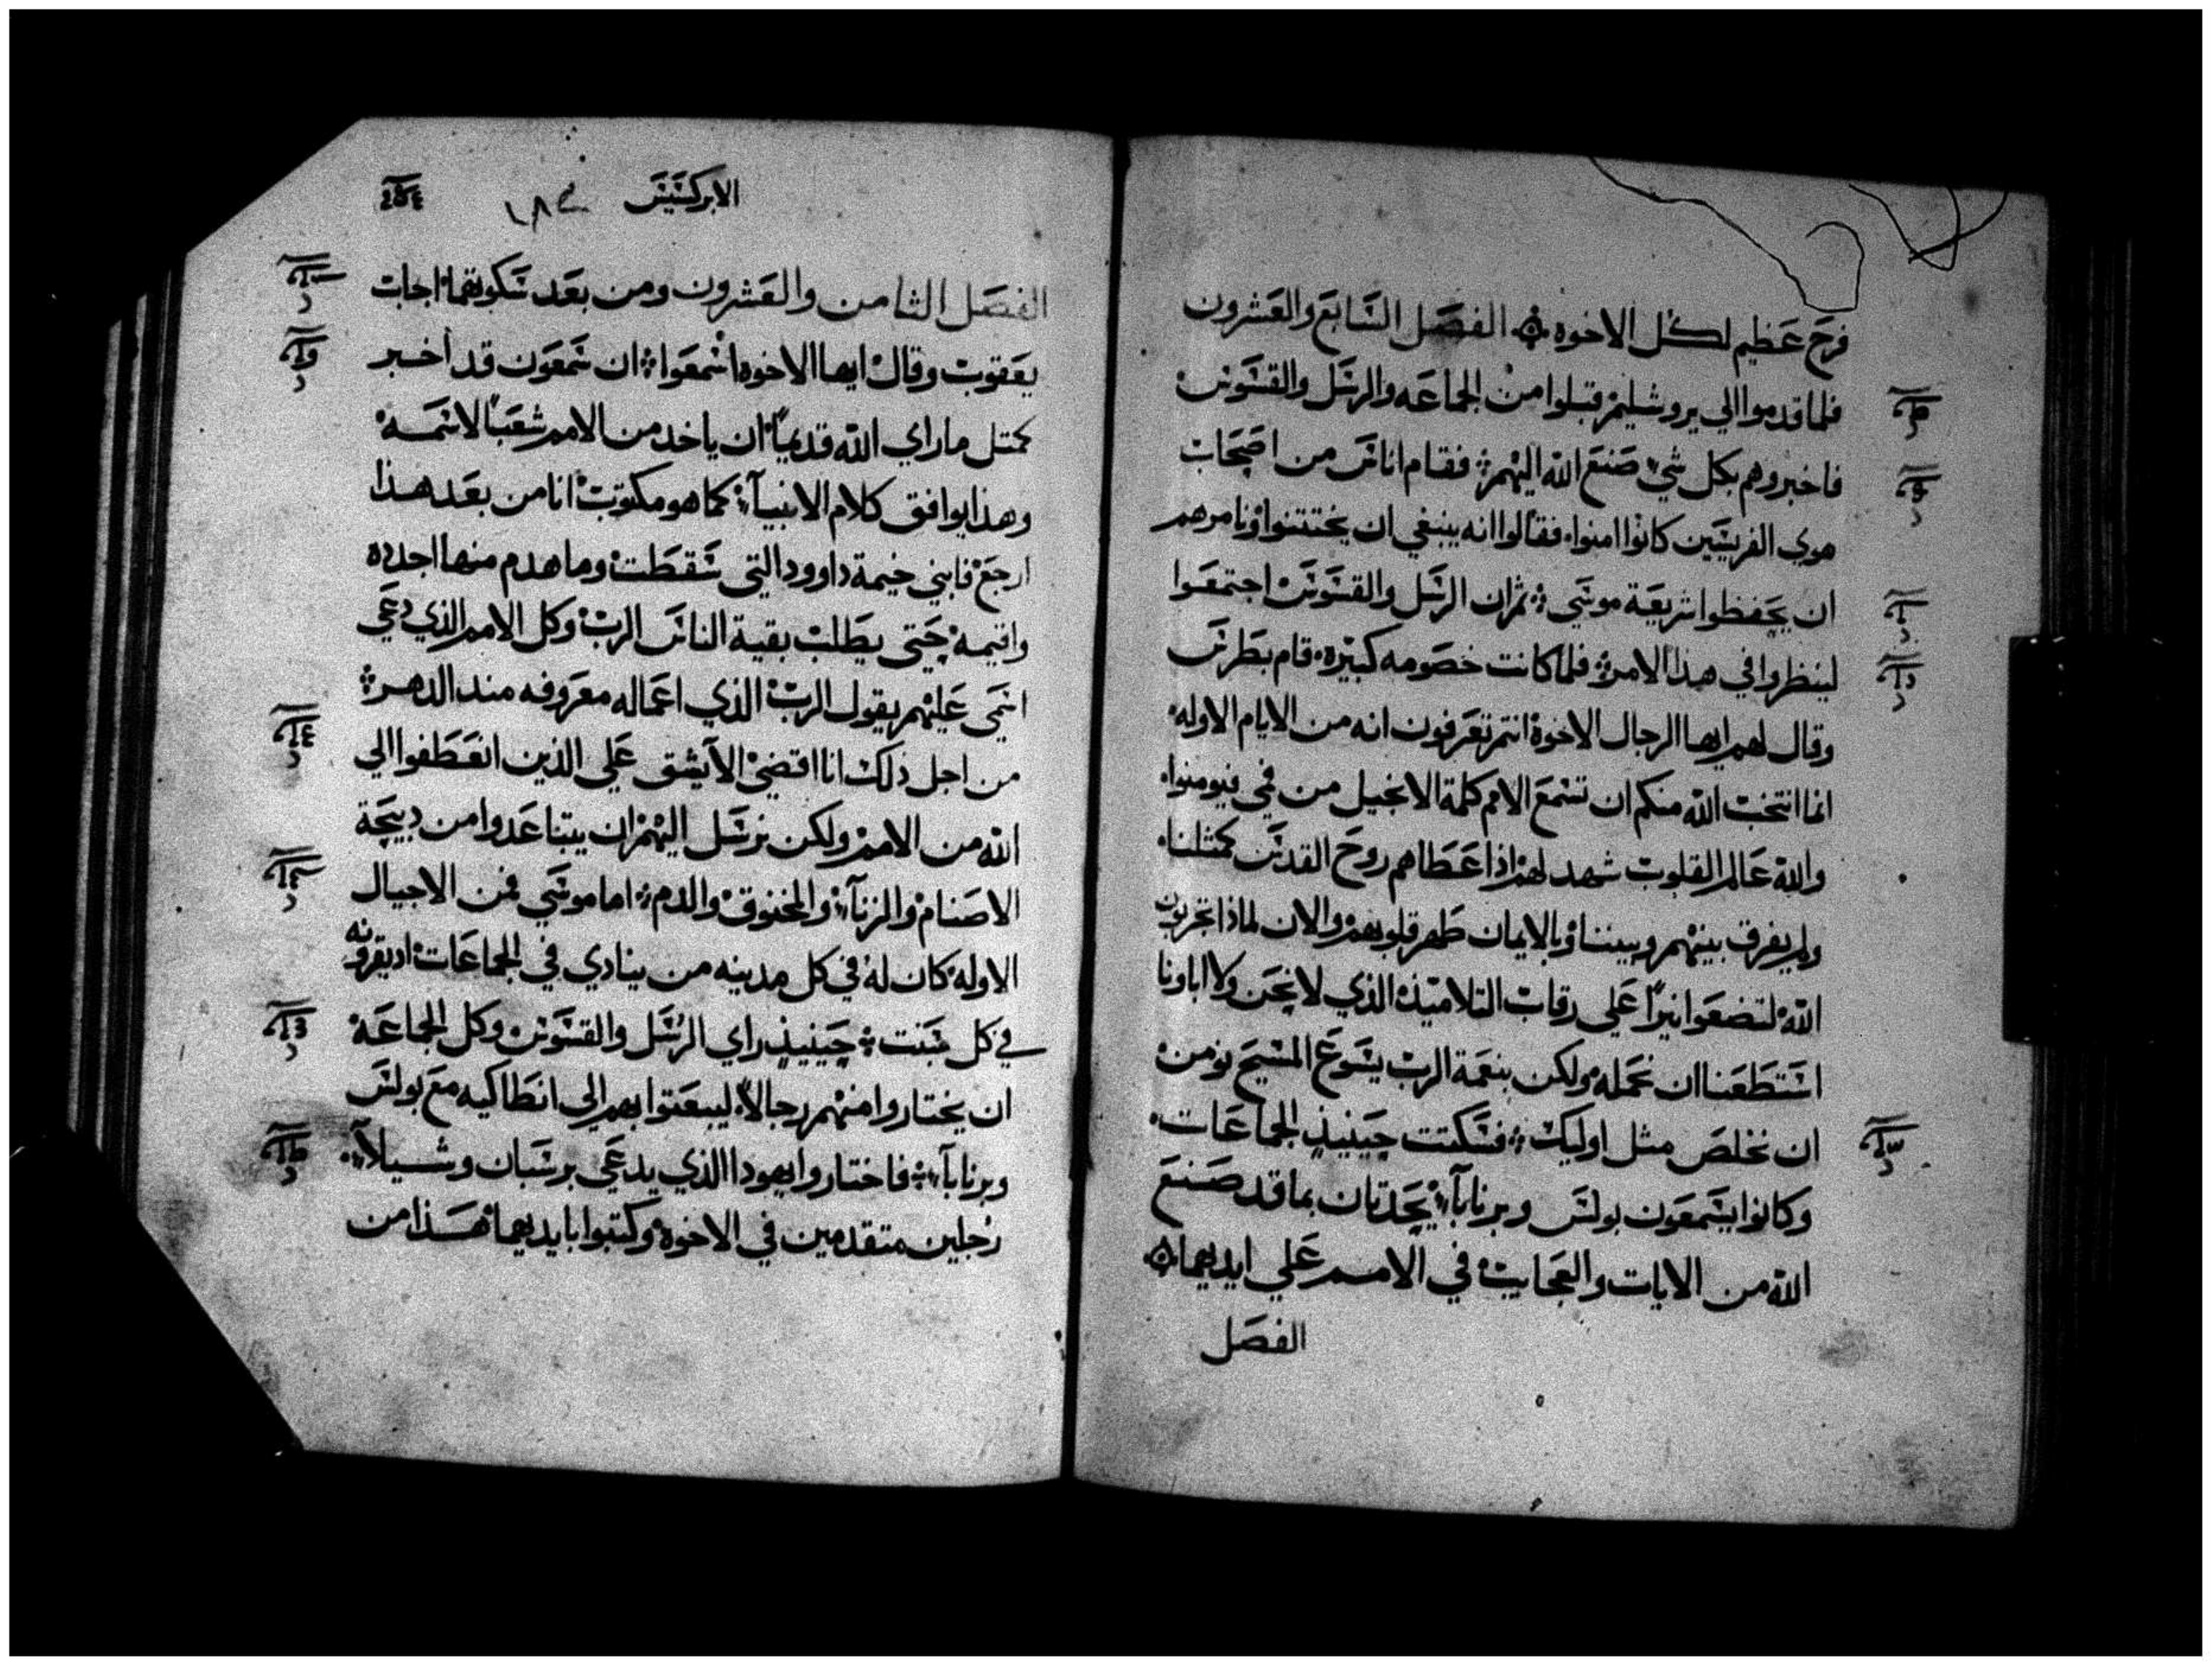 فرح عظيم لكل الاخوه ۞ الفصل السابع والعشرون
فلما قدموا الي يروشليم قبلوا من الجماعه والرسل والقسوس
فاخبروهم بكل شي صنع الله اليهم فقام اناس من اصحاب
هوي الفريسيين كانوا امنوا فقالوا انه ينبغي ان يختتنوا ونامرهم
ان يحفظوا شريعة موسي ثم ان الرسل والقسوس اجتمعوا
لينظروا في هذا الامر فلما كانت خصومه كبيره قام بطرس
وقال لهم ايها الرجال الاخوة انتم تعرفون انه من الايام الاوله
انما انتخب الله منكم ان تسمع الامم كلمة الانجيل من فمي فيومنوا
والله عالم القلوب شهد لهم اذ اعطاهم روح القدس كمثلنا
ولم يفرق بينهم وبيننا وبالايمان طهر قلوبهم والان لماذا تجربون
الله لتضعوا نيرا علي رقاب التلاميذ الذي لا نحن ولا اباونا
استطعنا ان نحمله ولكن بنعمة الرب يسوع المسيح نومن
ان نخلص مثل اوليك فسكتت حينيذ الجماعات
وكانوا يسمعون بولس وبرنابآ يحدثان بما قد صنع
الله من الايات والعجايب في الامم علي ايديهما ۞
الفصل
الابركسيس
الفصل الثامن والعشرون ومن بعد سكوتهما اجاب
يعقوب وقال ايها الاخوه اسمعوا ان سمعون قد اخبر
كمتل ما راي الله قديمًا ان ياخد من الامم شعبًا لاسمه
وهذا يوافق كلام الانبيآ كما هو مكتوب انا من بعد هذا
ارجع فابني خيمة داوود التي سقطت وما هدم منها اجدده
واقيمه حتي يطلب بقية الناس الرب وكل الامم الذي دعي
اسمي عليهم يقول الرب الذي اعماله معروفه مند الدهر
من اجل ذلك انا اقضي الا يشق علي الذين انعطفوا الي
الله من الامم ولكن نرسل اليهم ان يتباعدوا من دبيحة
الاصنام والزنآ والمخنوق والدم اما موسي فمن الاجيال
الاوله كان له في كل مدينه من ينادي في الجماعات اد يقرونه
في كل سبت حينيذ راي الرسل والقسوس وكل الجماعة
ان يختاروا منهم رجالاً ليبعتوا بهم الي انطاكيه مع بولس
وبرنابآ فاختاروا يهودا الذي يدعي برسبان وشيلآ
رجلين متقدمين في الاخوة وكتبوا بايديهما هذا من